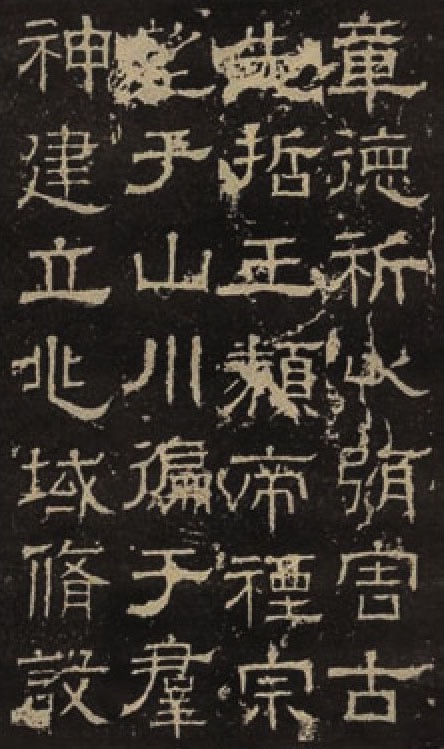 章德祈以弭害古
先哲王類帝禋宗
于山川徧于羣
神建立兆域脩設